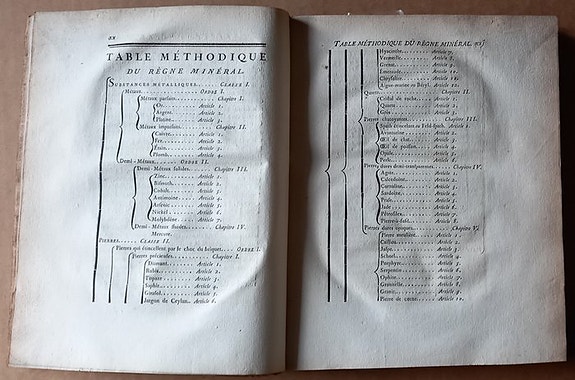 xx
TABLE MÉTHODIQUE
DU RÈGNE MINÉRAL.
SUBSTANCES METALLIQUES. CLASSE I.
Métaux. ORDRE I.
Métaux parfaits. Chapitre I.
Or. Article 1.
Argent. Article 2.
Platine. Article 3.
Métaux imparfaits. Chapitre II.
Cuivre. Article 1.
Fer. Article 2.
Étain. Article 3.
Plomb. Article 4.
Demi-Métaux. ORDRE II.
Demi-Métaux solides. Chapitre III.
Zinc. Article 1.
Bismuth. Article 2.
Cobalt. Article 3.
Antimoine. Article 4.
Arsenic. Article 5.
Nickel. Article 6.
Molybdène. Article 7.
Demi-Métaux fluides. Chapitre IV.
Mercure.
PIERRES. CLASSE II.
Pierres qui étincellent par le choc du briquet. ORDRE I.
Pierres précieuses. Chapitre I.
Diamant. Article 1.
Rubis. Article 2.
Topaze. Article 3.
Saphir. Article 4.
Girasol. Article 5.
Jargon de Ceylan. Article 6.
TABLE MÉTHODIQUE DU RÈGNE MINÉRAL. xxj
Hyacinthe. Article 7.
Vermeille. Article 8.
Grenat. Article 9.
Emeraude. Article 10.
Chrysolite. Article 11.
Aigue-marine ou Béryl. Article 12.
Quartz. Chapitre II.
Cristal de roche. Article 1.
Quartz. Article 2.
Grès. Article 3.
Pierres chatoyantes. Chapitre III.
Spath étincelant ou Feld-spath. Article 1.
Avanturine. Article 2.
Œil de chat. Article 3.
Œil de poisson. Article 4.
Opale. Article 5.
Article 6.
Pierres dures demi-transparentes. Chapitre IV.
Agate. Article 1.
Calcédoine. Article 2.
Cornaline. Article 3.
Sardoine. Article 4.
Prase. Article 5.
Jade. Article 6.
Pétrosilex. Article 7.
Pierre-à-fusil. Article 8.
Pierres dures opaques. Chapitre V.
Pierre meulière. Article 1.
Caillou. Article 2.
Jaspe. Article 3.
Schorl. Article 4.
Porphyre. Article 5.
Serpentin. Article 6.
Ophite. Article 7.
Granitelle. Article 8.
Granit. Article 9.
Pierre de corne. Article 10.